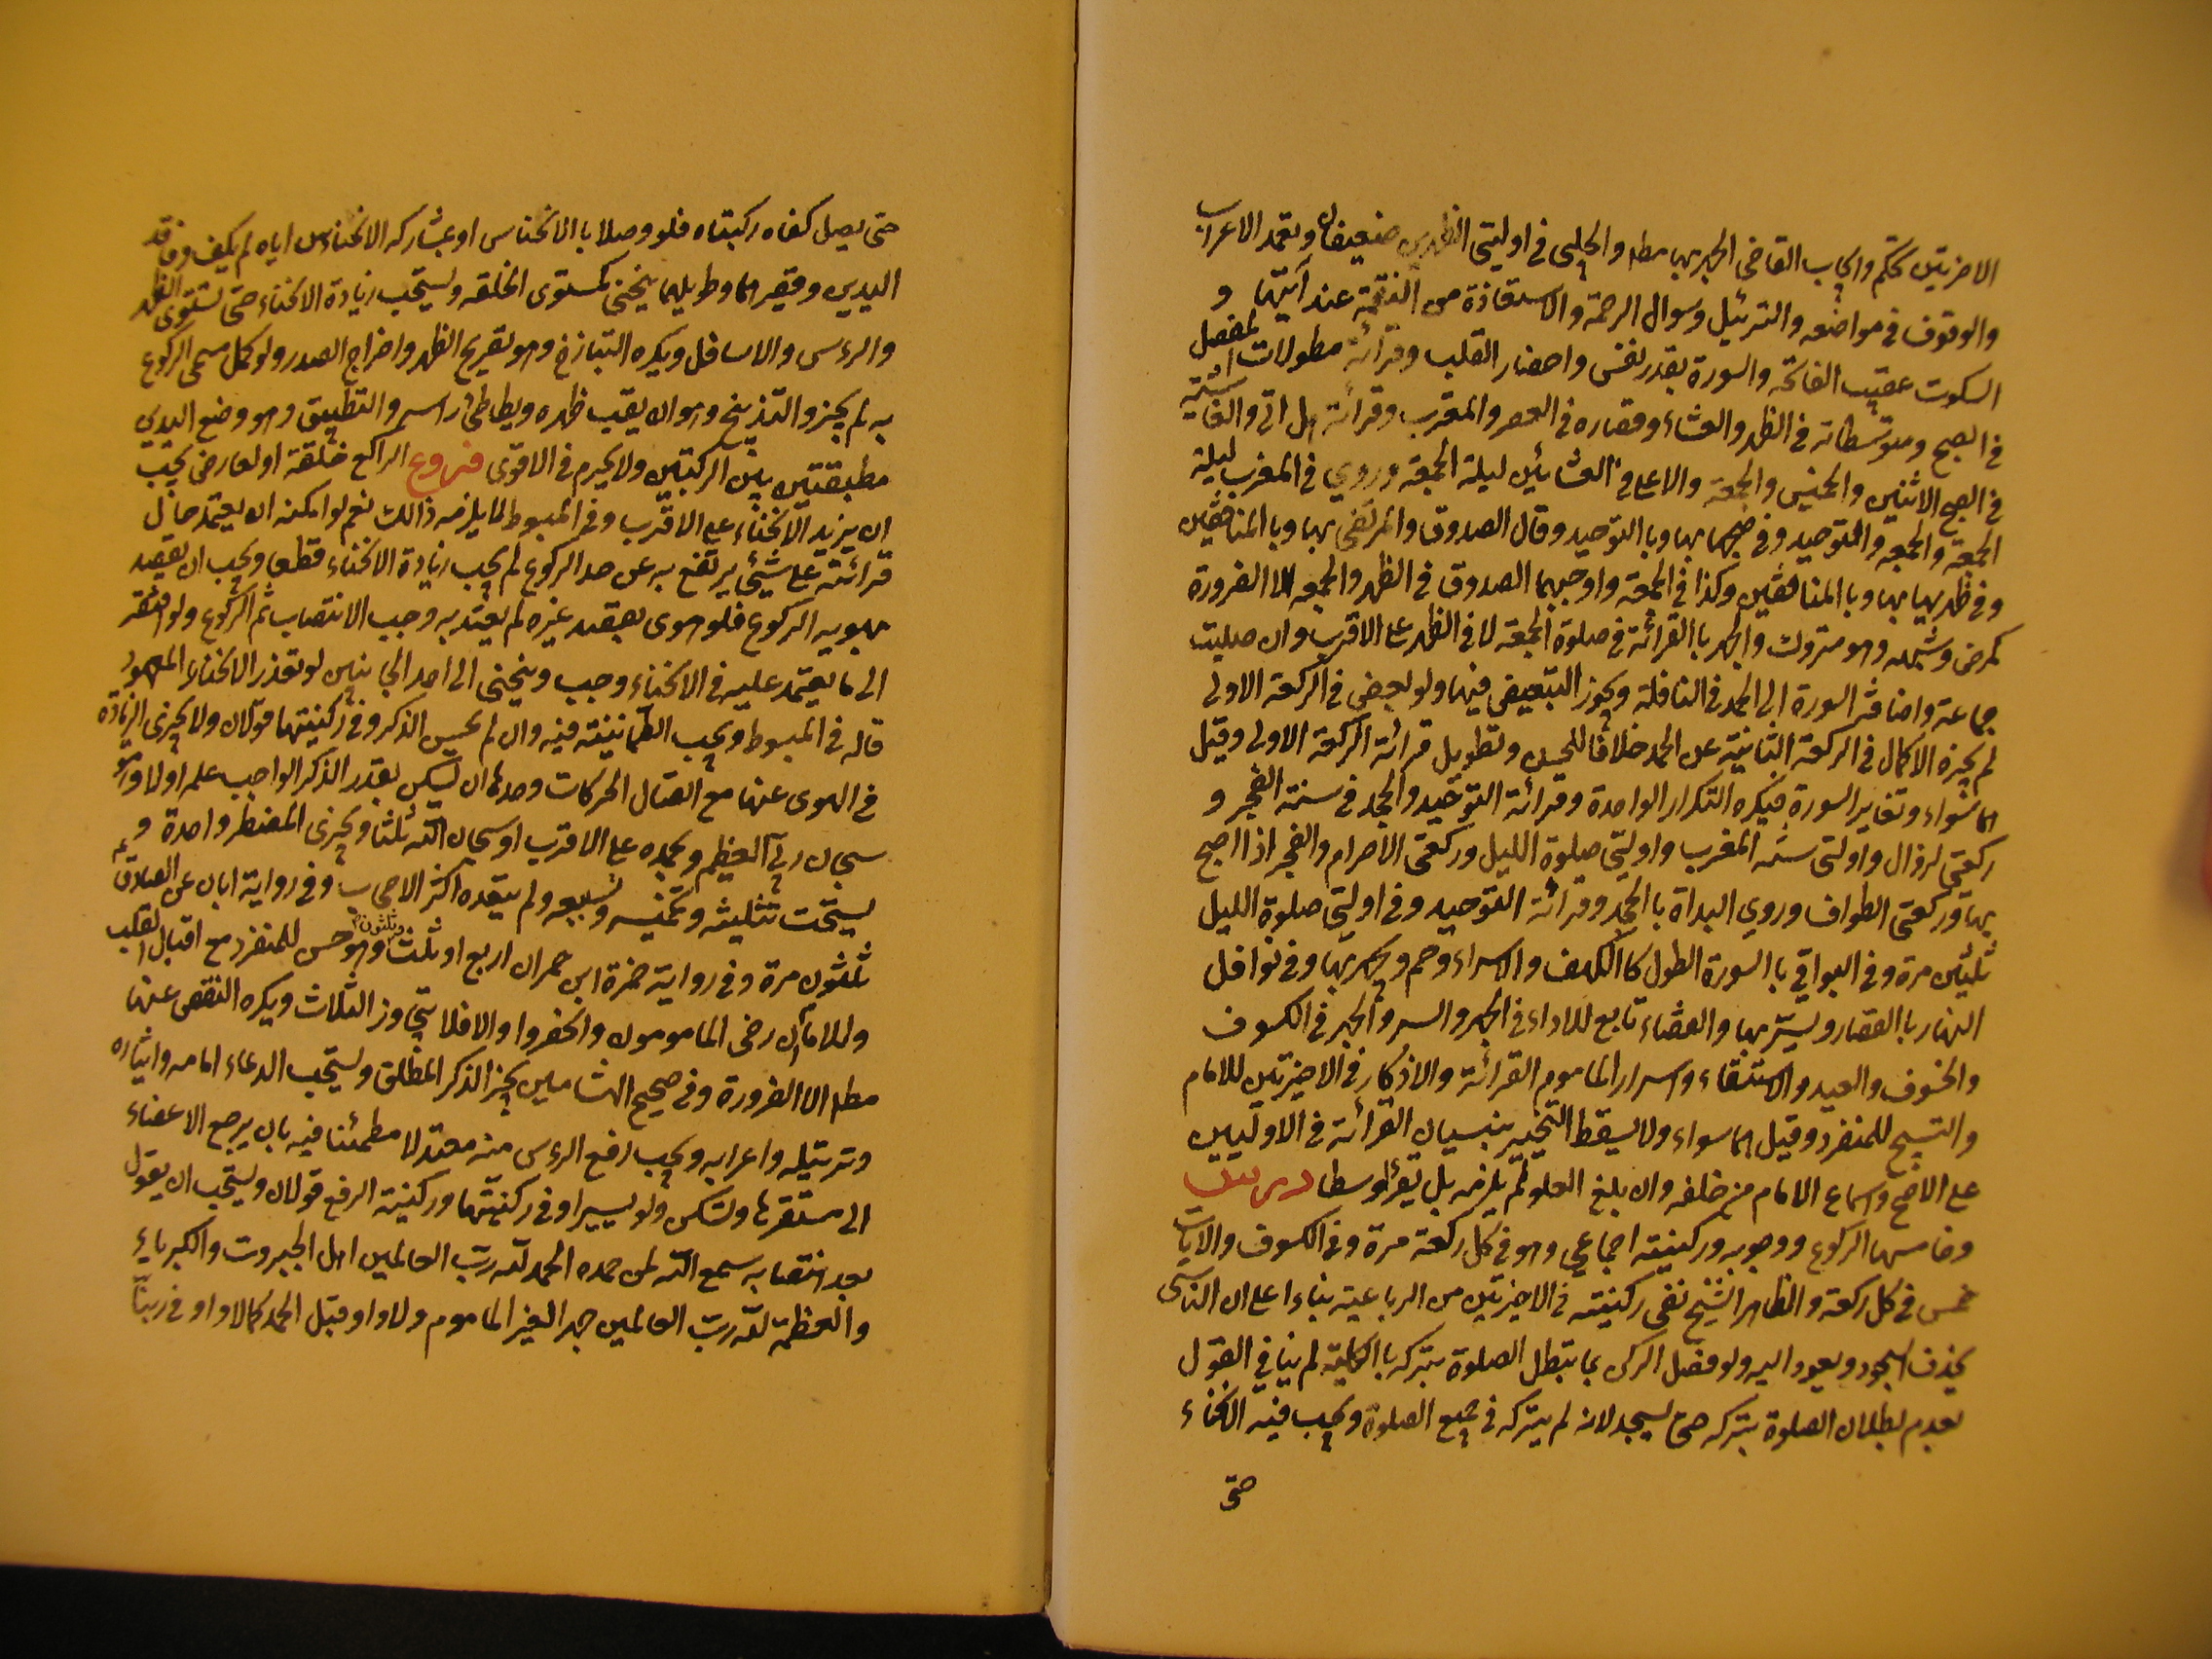 الاخريتين تحكم وايجاب القاضى الجهر بها مطلقا والحلبى فى اوليتى الظهرين ضعيفان وتعمد الاعراب
والوقوف فى مواضعه والترتيل وسوال الرحمة والاستعاذة من النقمة عند آيتيهما و
السكوت عقيب الفاتحة والسورة بقدر نفس واحضار القلب وقرائة مطولات المفصل
فى الصبح ومتوسطاته فى الظهر والعشاء وقصاره فى العصر والمغرب وقرائة هل اتى والغاشية
فى الصبح الاثنين والخميس والجمعة والاعلى فى العشائين ليلة الجمعة وروي فى المغرب ليلة
الجمعة والجمعه والتوحيد وفى صبحها بها وبا التوحيد وقال الصدوق والمرتضى بها وبا المنافقين
وفى ظهريها بها وبا المنافقين وكذا فى الجمعة واوجبهما الصدوق فى الظهر والجمعه الا الضرورة
كمرض وشبهه وهو متروك والجهر با القرائة فى صلوة الجمعة لا فى الظهر على الاقرب وان صليت
جماعة واضافة السورة الى الحمد فى النافلة ويجوز التبعيض فيها ولو بعض فى الركعة الاولى
لم يجزه الاكمال فى الركعة الثانية عن الحمد خلافا للحسن وتطويل قرائة الركعة الاولى وقيل
هما سواء وتغاير السورة فيكره التكرار الواحدة وقرائة التوحيد والجحد فى سنة الفجر و
ركعتى الزوال واولتى سنة المغرب واولتى صلوة الليل وركعتى الاحرام والفجر اذا اصبح
بها وركعتى الطواف وروي البداة با الجحد وقرائة التوحيد وفى اوليتى صلوة الليل
ثلثين مرة وفى البواقى با السورة الطول كا الكهف والاسراء وحم ويجهر بها وفى نوافل
النهار با القصار ويسر بها والقضاء تابع للاداء فى الجهر والسر والجهر فى الكسوف
والخسوف والعيد والاستسقاء واسرار الماموم القرائة والاذكار فى الاخيرتين للامام
والتسبيح للمنفرد وقيل هما سواء ولا يسقط التخيير بنسيان القرائة فى الاوليين
على الاصح واسماع الامام من خلفه وان بلغ العلو لم يلزمه بل يقرأ وسطا درس
وخامسها الركوع ووجوبه وركنيته اجماعى وهو فى كل ركعة مرة وفى الكسوف والايات
خمس فى كل ركعة والظاهر الشيخ نفى ركنيته فى الاخيرتين من الرباعية بناءا على ان الناسى
يحذف السجود ويعود اليه ولو فصل الركن بما تبطل الصلوة بتركه با الكلية لم ينافى القول
بعدم بطلان الصلوة بتركه حتى يسجد لانه لم يتركه فى جميع الصلوة ويجب فيه الانحناء
حتى
حتى يصل كفاه ركبتاه فلو وصلا با الانخناس او بمشاركه الانخناس اياه لم يكف وفاقد
اليدين وقصيرهما وطويلهما ينحنى كمستوى الخلقه ويستحب زيادة الانحناء حتى تستوى الظهر
والرءس والاسافل ويكره التبازخ وهو تقريح الظهر واخراج الصدر ولو كمل مسمى الركوع
به لم يجز والتذبيخ وهو ان يقبب ظهره ويطاطئ راسه والتطبيق وهو وضع اليدي
مطبقتين بين الركبتين ولا يحرم فى الاقوى فروع الراكع خلقة او لعارض يجب
ان يزيد الانحناء على الاقرب وفى المبسوط لا يلزمه ذالك نعم لو امكنه ان يعتمد حال
قرائته على شيئ يرتفع به عن حد الركوع لم يجب زيادة الانحناء قطعا ويجب ان يقصد
بهويه الركوع فلو هوى بقصد غيره لم يعتد به وجب الانتصاب ثم الركوع ولو افتقر
الى ما يعتمد عليه فى الانحناء وجب وينحنى الى احد الجانبين لو تعذر الانحناء المعهود
قاله فى المبسوط ويجب الطمانينة فيه وان لم يحسن الذكر وفى ركنيتها قولان ولا يجزى الزيادة
فى الهوى عنها مع اتصال الحركات وحدها ان يسكن بقدر الذكر الواجب علمه اولا وهو
سبحان ربى العظيم وبحمده على الاقرب او سبحان الله ثلثا ويجزى المضطر واحدة و
يستحب تثليثه وتخميسه وتسبيعه ولم يتعده اكثر الاصحاب وفى رواية ابان عن الصادق ع
ثلثون مرة وفى رواية حمزة ابن حمران اربع او ثلث وثلثون وهو حسن للمنفرد مع اقبال القلب
وللامام ان رضى المامومون وانحضروا والافلا يتجاوز الثلاث ويكره النقص عنها
مطلقا الا الضرورة وفى صحيح الهشامين يجز الذكر المطلق ويستحب الدعاء امامه وايتاره
وترتيله واعرابه ويجب رفع الرءس منه معتدلا مطمئنا فيه بان يرجع الاعضاء
الى مستقرها وتسكن ولو يسيرا وفى ركنيتها وركنية الرفع قولان ويستحب ان يقول
بعد انتصابه سمع الله لمن حمده الحمد لله رب العالمين اهل الجبروت والكبرياء
والعظمة لله رب العالمين جهرا لغير الماموم ولا واو قبل الحمد كما لا واو فى ربنا